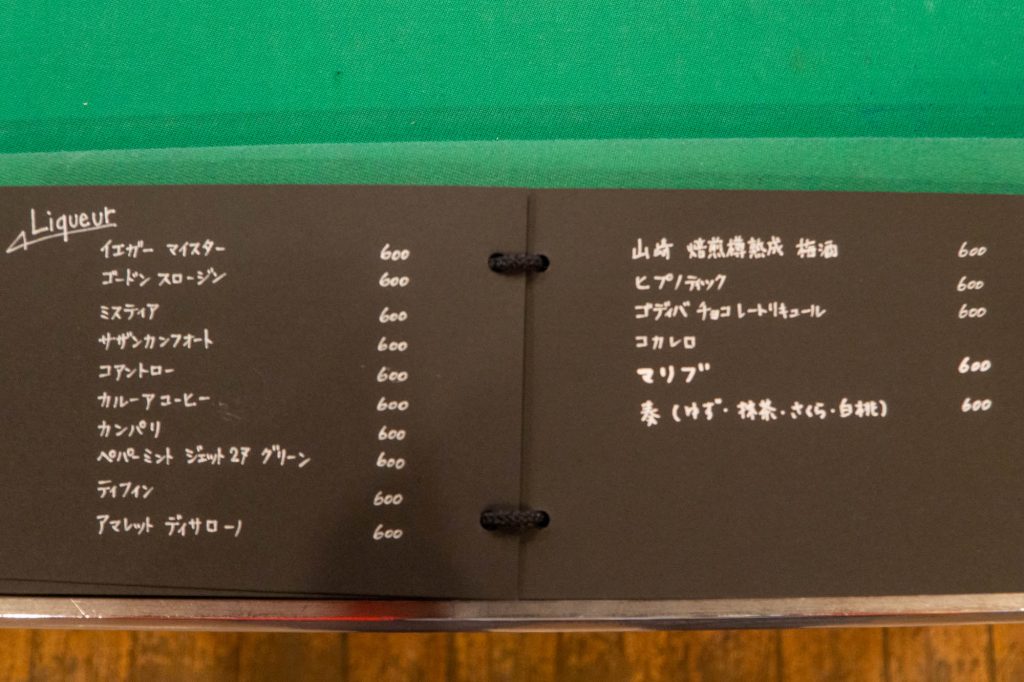 Liqueur
イエガー マイスター 600
ゴードン スロージン 600
ミスティア 600
サザンカンフォート 600
コアントロー 600
カルーアコーヒー 600
カンパリ 600
ペパーミント ジェット27 グリーン 600
ティフィン 600
アマレット ディサローノ 600
山崎 焙煎樽熟成 梅酒 600
ヒプノティック 600
ゴディバ チョコレートリキュール 600
コカレロ
マリブ 600
奏(ゆず・抹茶・さくら・白桃) 600